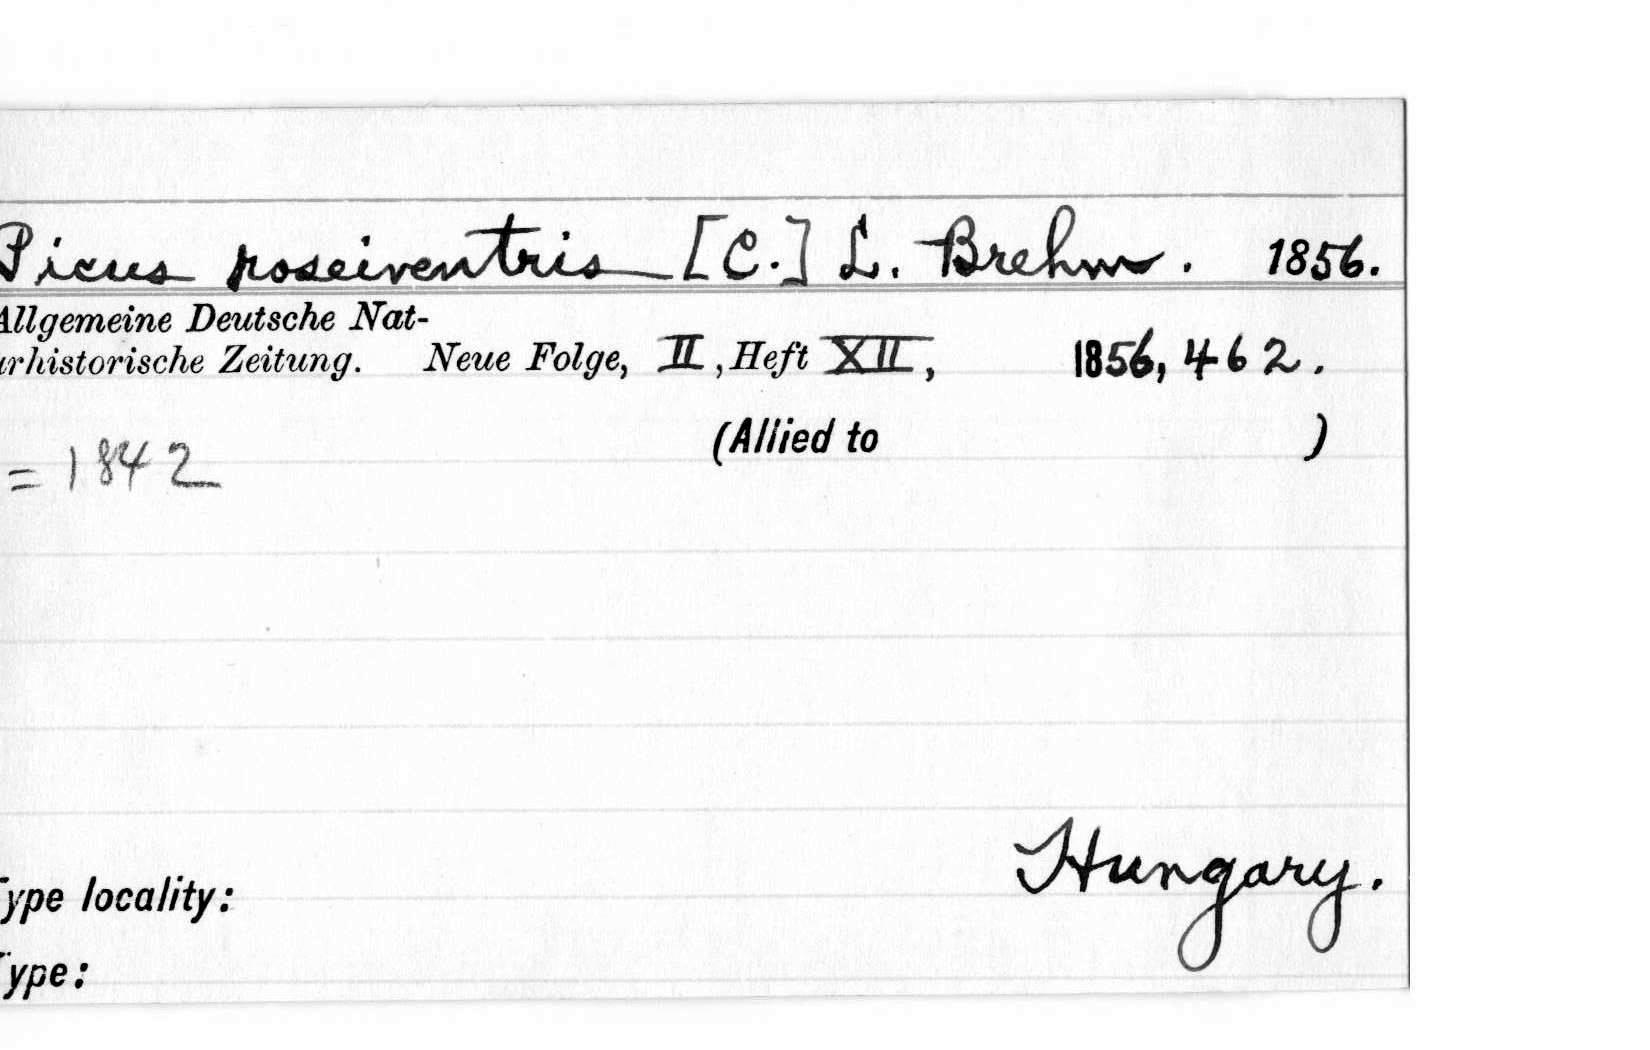 Picus roseiventris [C.] L. Brehm. 1856.
Allgemeine Deutsche Nat-
urhistorische Zeitung. Neue Folge, II, Heft XII, 1856, 462.
(Allied to )
= 1842
Hungary.
Type locality:
Type: